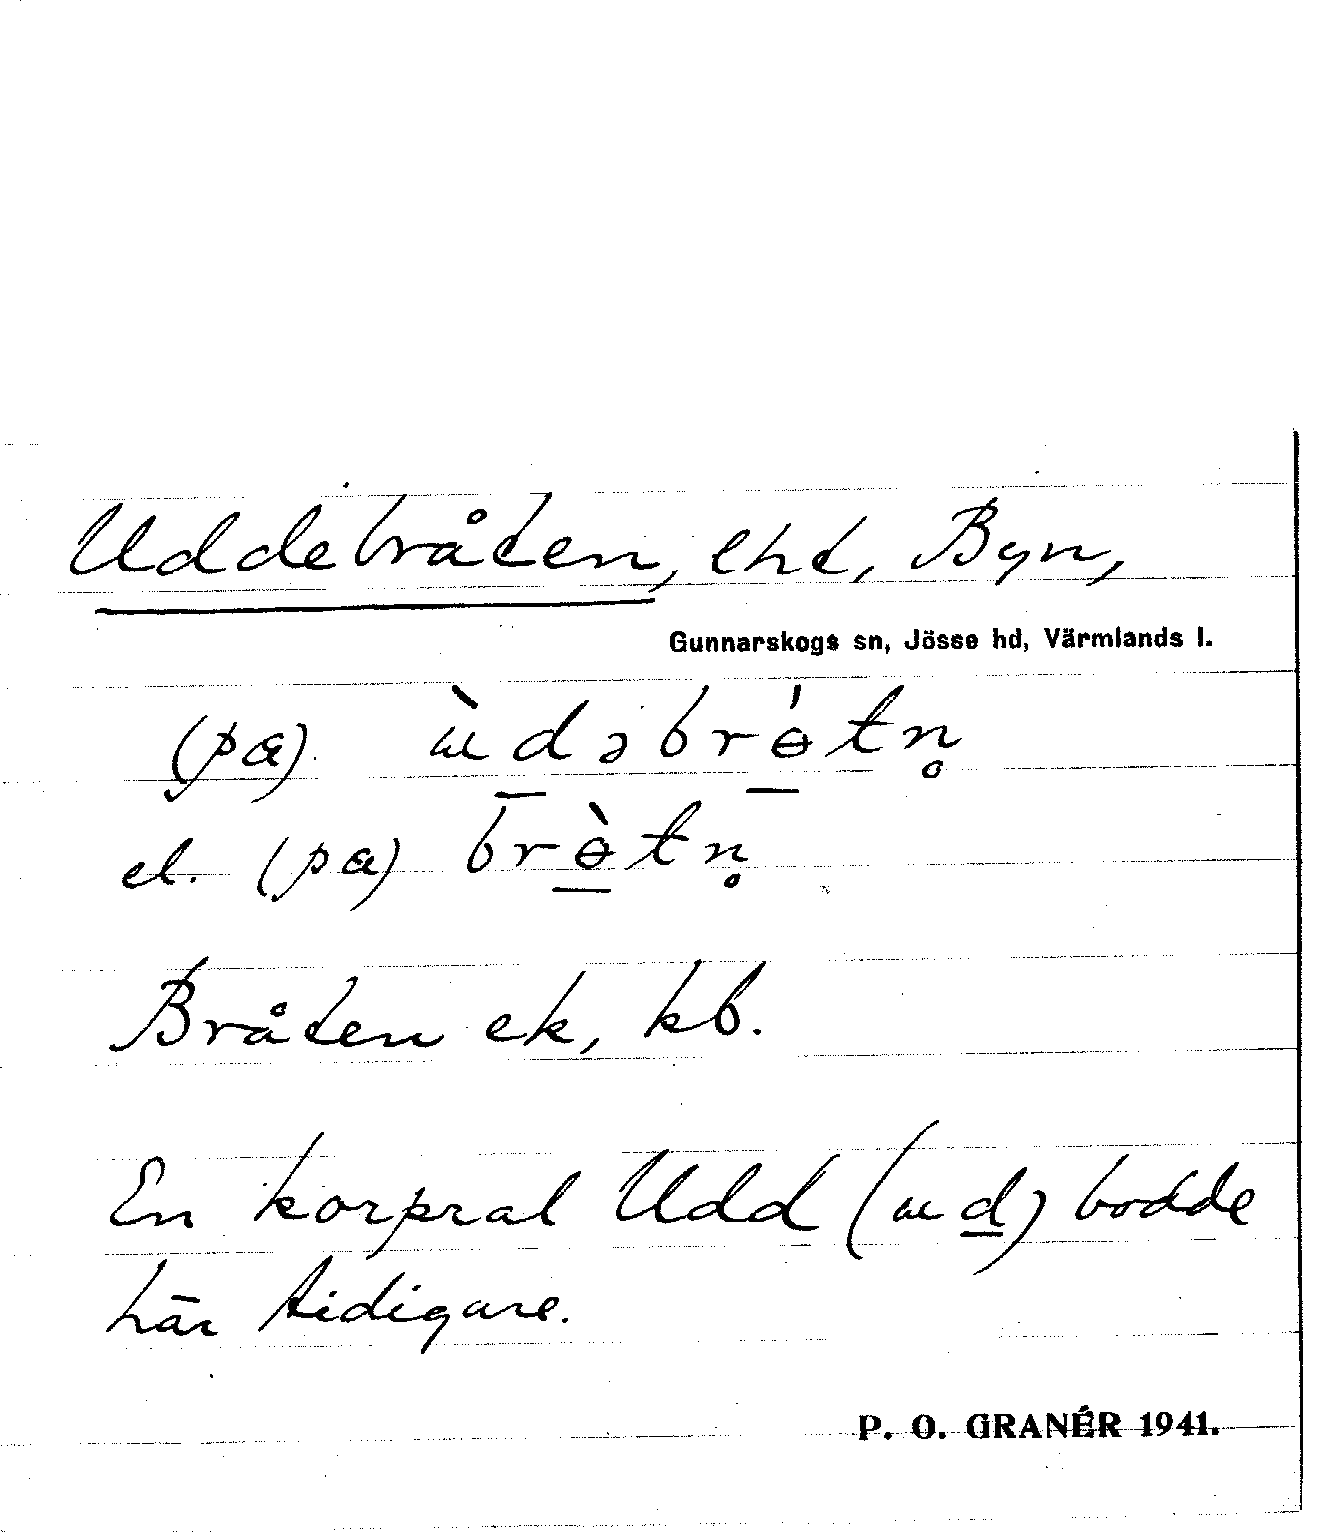 Uddebråten, lht, Byn,
Gunnarskogs sn, Jösse hd, Värmlands l.
(pα). ɯ̀dəbrɵ́tn̥
el. (pα) brɵ̀tn̥
Bråten ek, kb.
En korpral Udd (ɯd) bodde
här tidigare.
P. O. GRANÉR 1941.